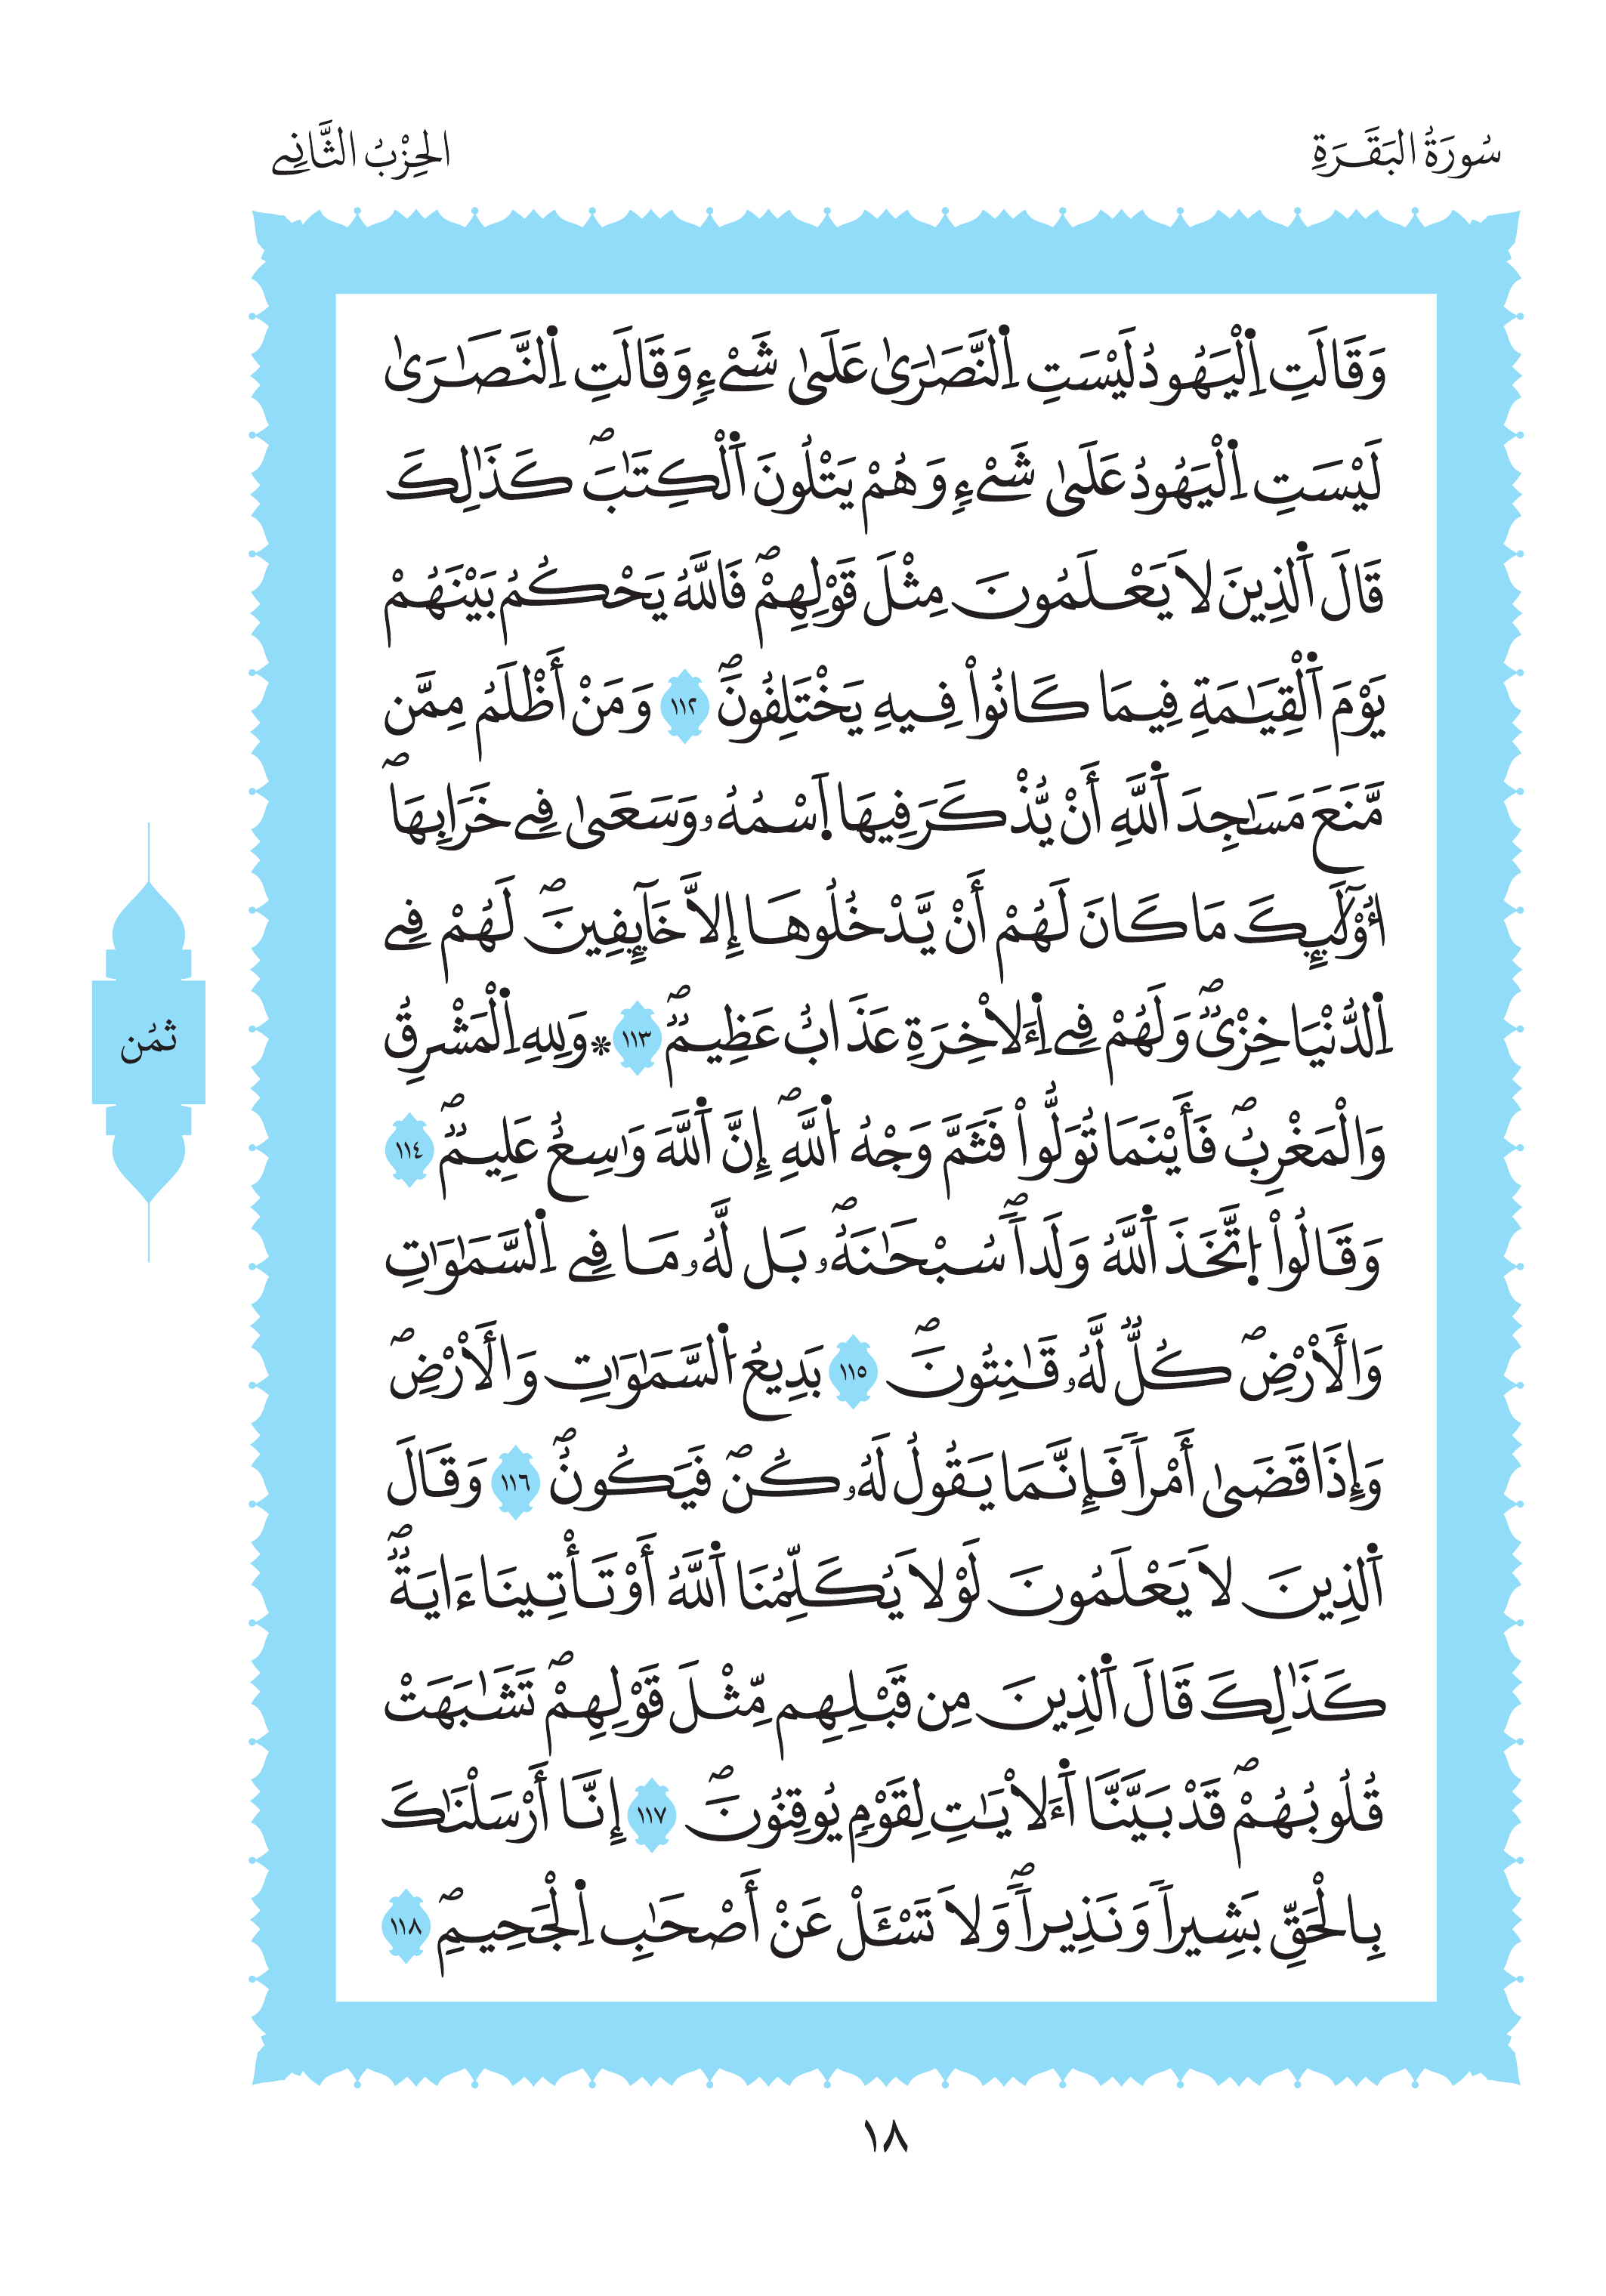 سُورَةُ البَقَرَةِ
الحِزْبُ الثَّانِے
وَقَالَتِ اِ۬لْيَهُودُ لَيْسَتِ اِ۬لنَّصَٰرَىٰ عَلَىٰ شَےْءٖ وَقَالَتِ اِ۬لنَّصَٰرَىٰ
لَيْسَتِ اِ۬لْيَهُودُ عَلَىٰ شَےْءٖ وَهُمْ يَتْلُونَ اَ۬لْكِتَٰبَۖ كَذَٰلِكَ
قَالَ اَ۬لذِينَ لَا يَعْلَمُونَ مِثْلَ قَوْلِهِمْۖ فَاللَّهُ يَحْكُمُ بَيْنَهُمْ
يَوْمَ اَ۬لْقِيَٰمَةِ فِيمَا كَانُواْ فِيهِ يَخْتَلِفُونَۖ ١١٢ وَمَنْ أَظْلَمُ مِمَّن
مَّنَعَ مَسَٰجِدَ اَ۬للَّهِ أَنْ يُّذْكَرَ فِيهَا اَ۪سْمُهُۥ وَسَعَىٰ فِے خَرَابِهَاۖ
أُوْلَٰٓئِكَ مَا كَانَ لَهُمْ أَنْ يَّدْخُلُوهَا إِلَّا خَآئِفِينَۖ لَهُمْ فِے
اِ۬لدُّنْيَا خِزْيٞۖ وَلَهُمْ فِے اِ۬لَاخِرَةِ عَذَابٌ عَظِيمٞۖ ١١٣ * وَلِلهِ اِ۬لْمَشْرِقُ
وَالْمَغْرِبُۖ فَأَيْنَمَا تُوَلُّواْ فَثَمَّ وَجْهُ اُ۬للَّهِۖ إِنَّ اَ۬للَّهَ وَٰسِعٌ عَلِيمٞۖ ١١٤
وَقَالُواْ اُ۪تَّخَذَ اَ۬للَّهُ وَلَداٗۖ سُبْحَٰنَهُۥۖ بَل لَّهُۥ مَا فِے اِ۬لسَّمَٰوَٰتِ
وَالَارْضِۖ كُلّٞ لَّهُۥ قَٰنِتُونَۖ ١١٥ بَدِيعُ اُ۬لسَّمَٰوَٰتِ وَالَارْضِۖ
وَإِذَا قَضَىٰ أَمْراٗ فَإِنَّمَا يَقُولُ لَهُۥ كُنۖ فَيَكُونُۖ ١١٦ وَقَالَ
اَ۬لذِينَ لَا يَعْلَمُونَ لَوْلَا يُكَلِّمُنَا اَ۬للَّهُ أَوْ تَأْتِينَا ءَايَةٞۖ
كَذَٰلِكَ قَالَ اَ۬لذِينَ مِن قَبْلِهِم مِّثْلَ قَوْلِهِمْۖ تَشَٰبَهَتْ
قُلُوبُهُمْۖ قَدْ بَيَّنَّا اَ۬لَايَٰتِ لِقَوْمٖ يُوقِنُونَۖ ١١٧ إِنَّا أَرْسَلْنَٰكَ
بِالْحَقِّ بَشِيراٗ وَنَذِيراٗۖ وَلَا تَسْـَٔلْ عَنْ أَصْحَٰبِ اِ۬لْجَحِيمِۖ ١١٨
ثُمُن
١٨